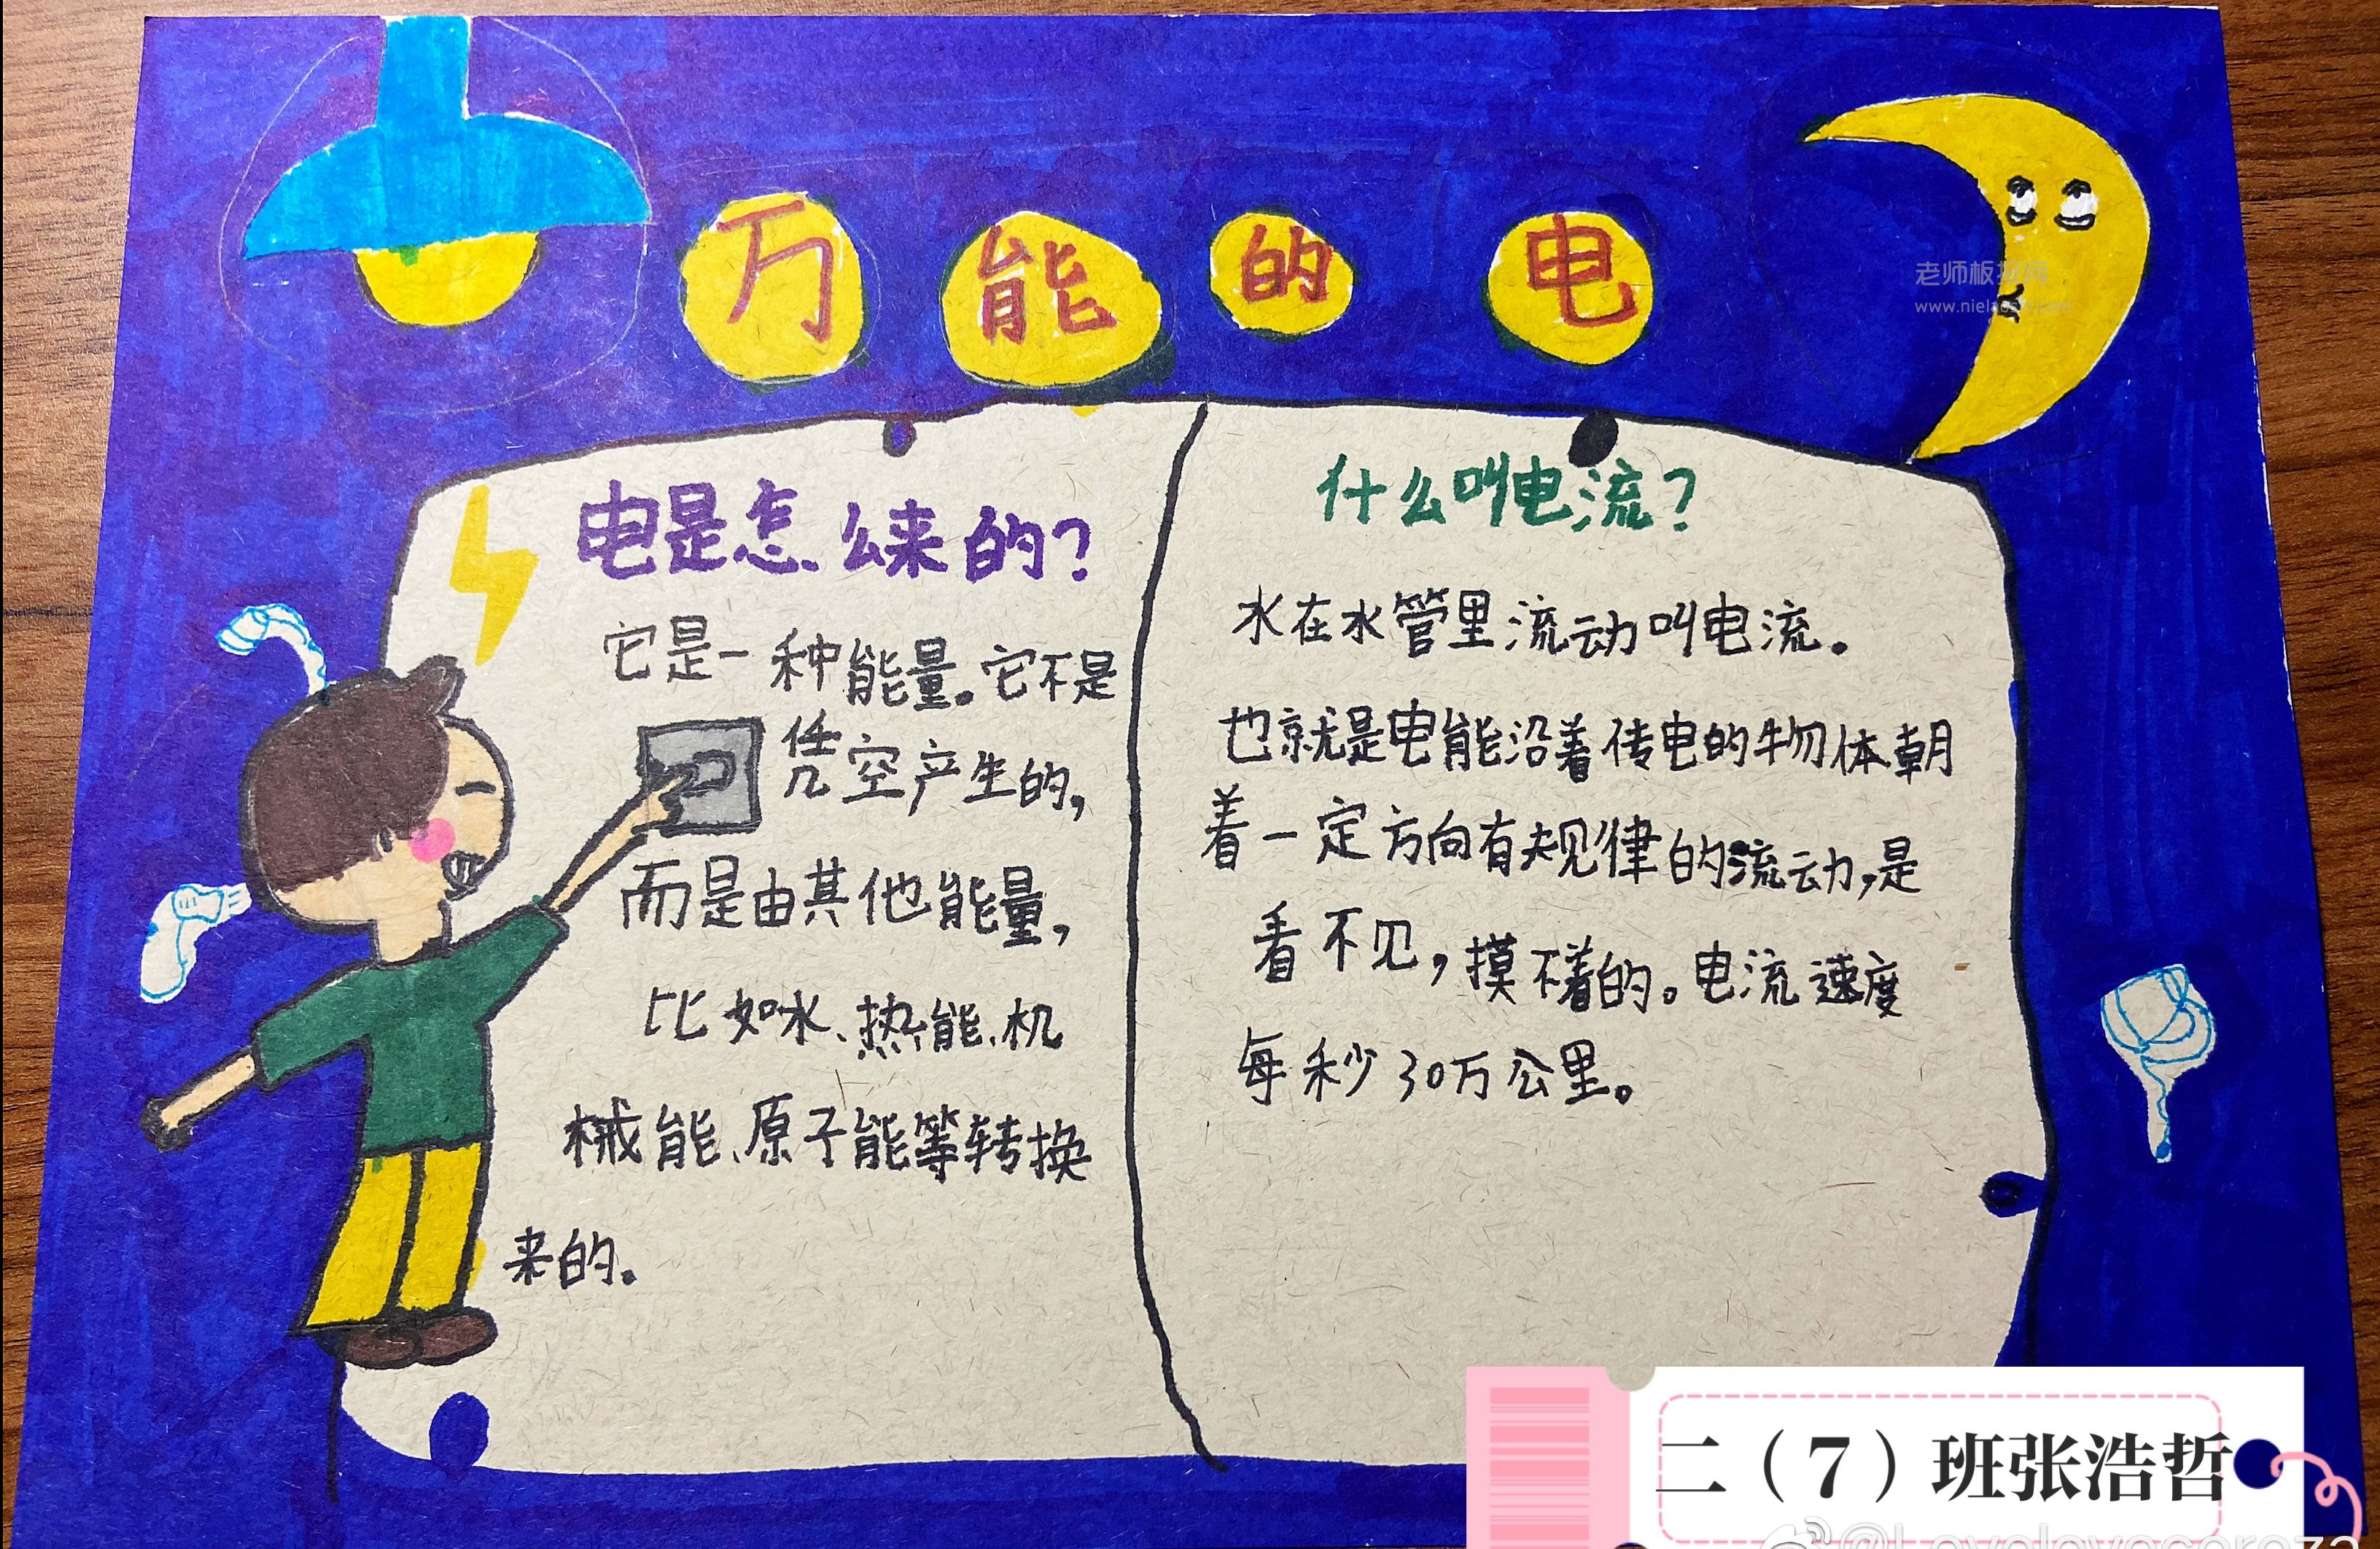 万能的电
老师板报网
电是怎么来的？
它是一种能量。它不是
凭空产生的，
而是由其他能量，
比如水、热能、机
械能、原子能等转换
来的。
什么叫电流？
水在水管里流动叫电流。
也就是电能沿着传电的物体朝
着一定方向有规律的流动，是
看不见，摸不着的。电流速度
每秒30万公里。
二（7）班张浩哲